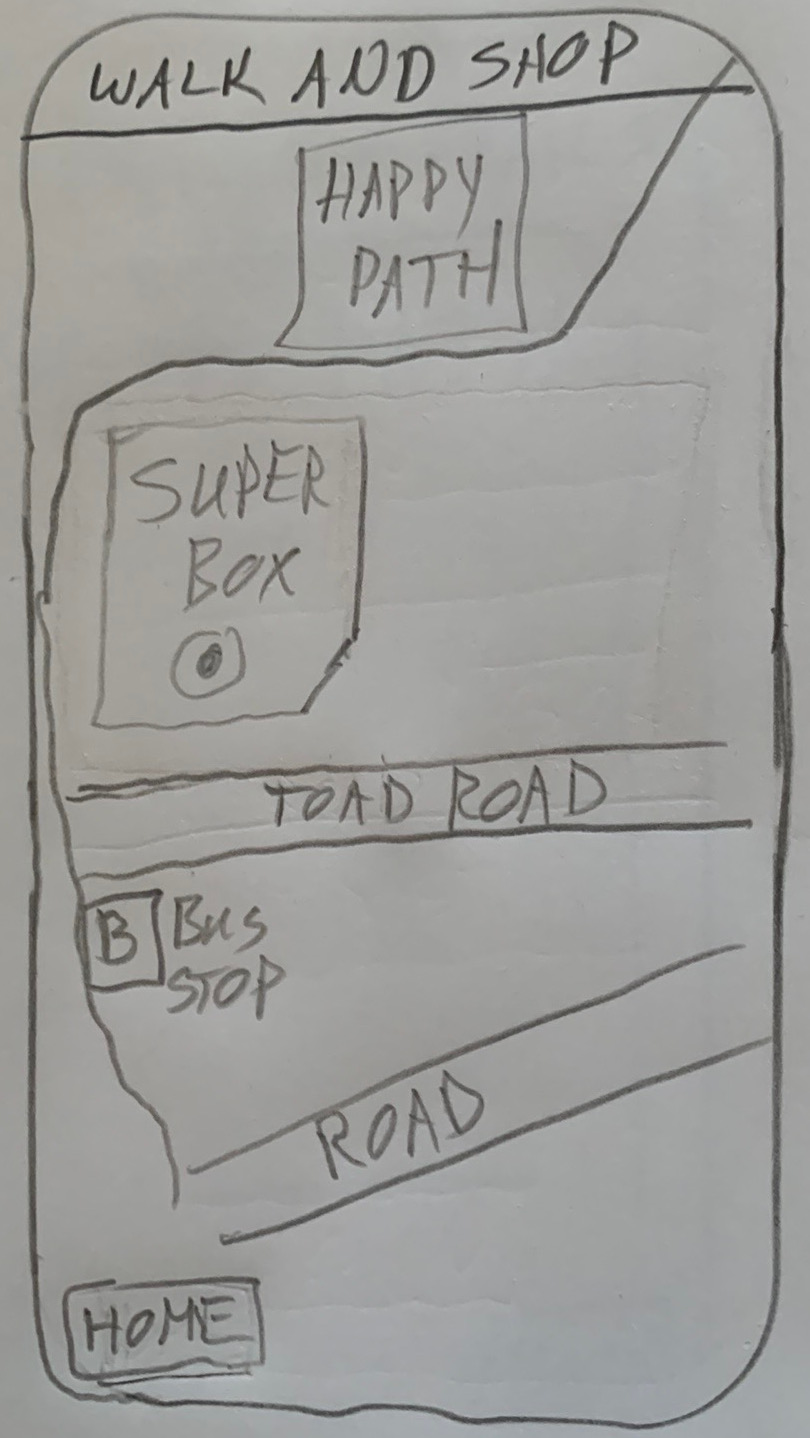 WALK AND SHOP
HAPPY
PATH
SUPER
BOX
TOAD ROAD
B
BUS
STOP
ROAD
HOME